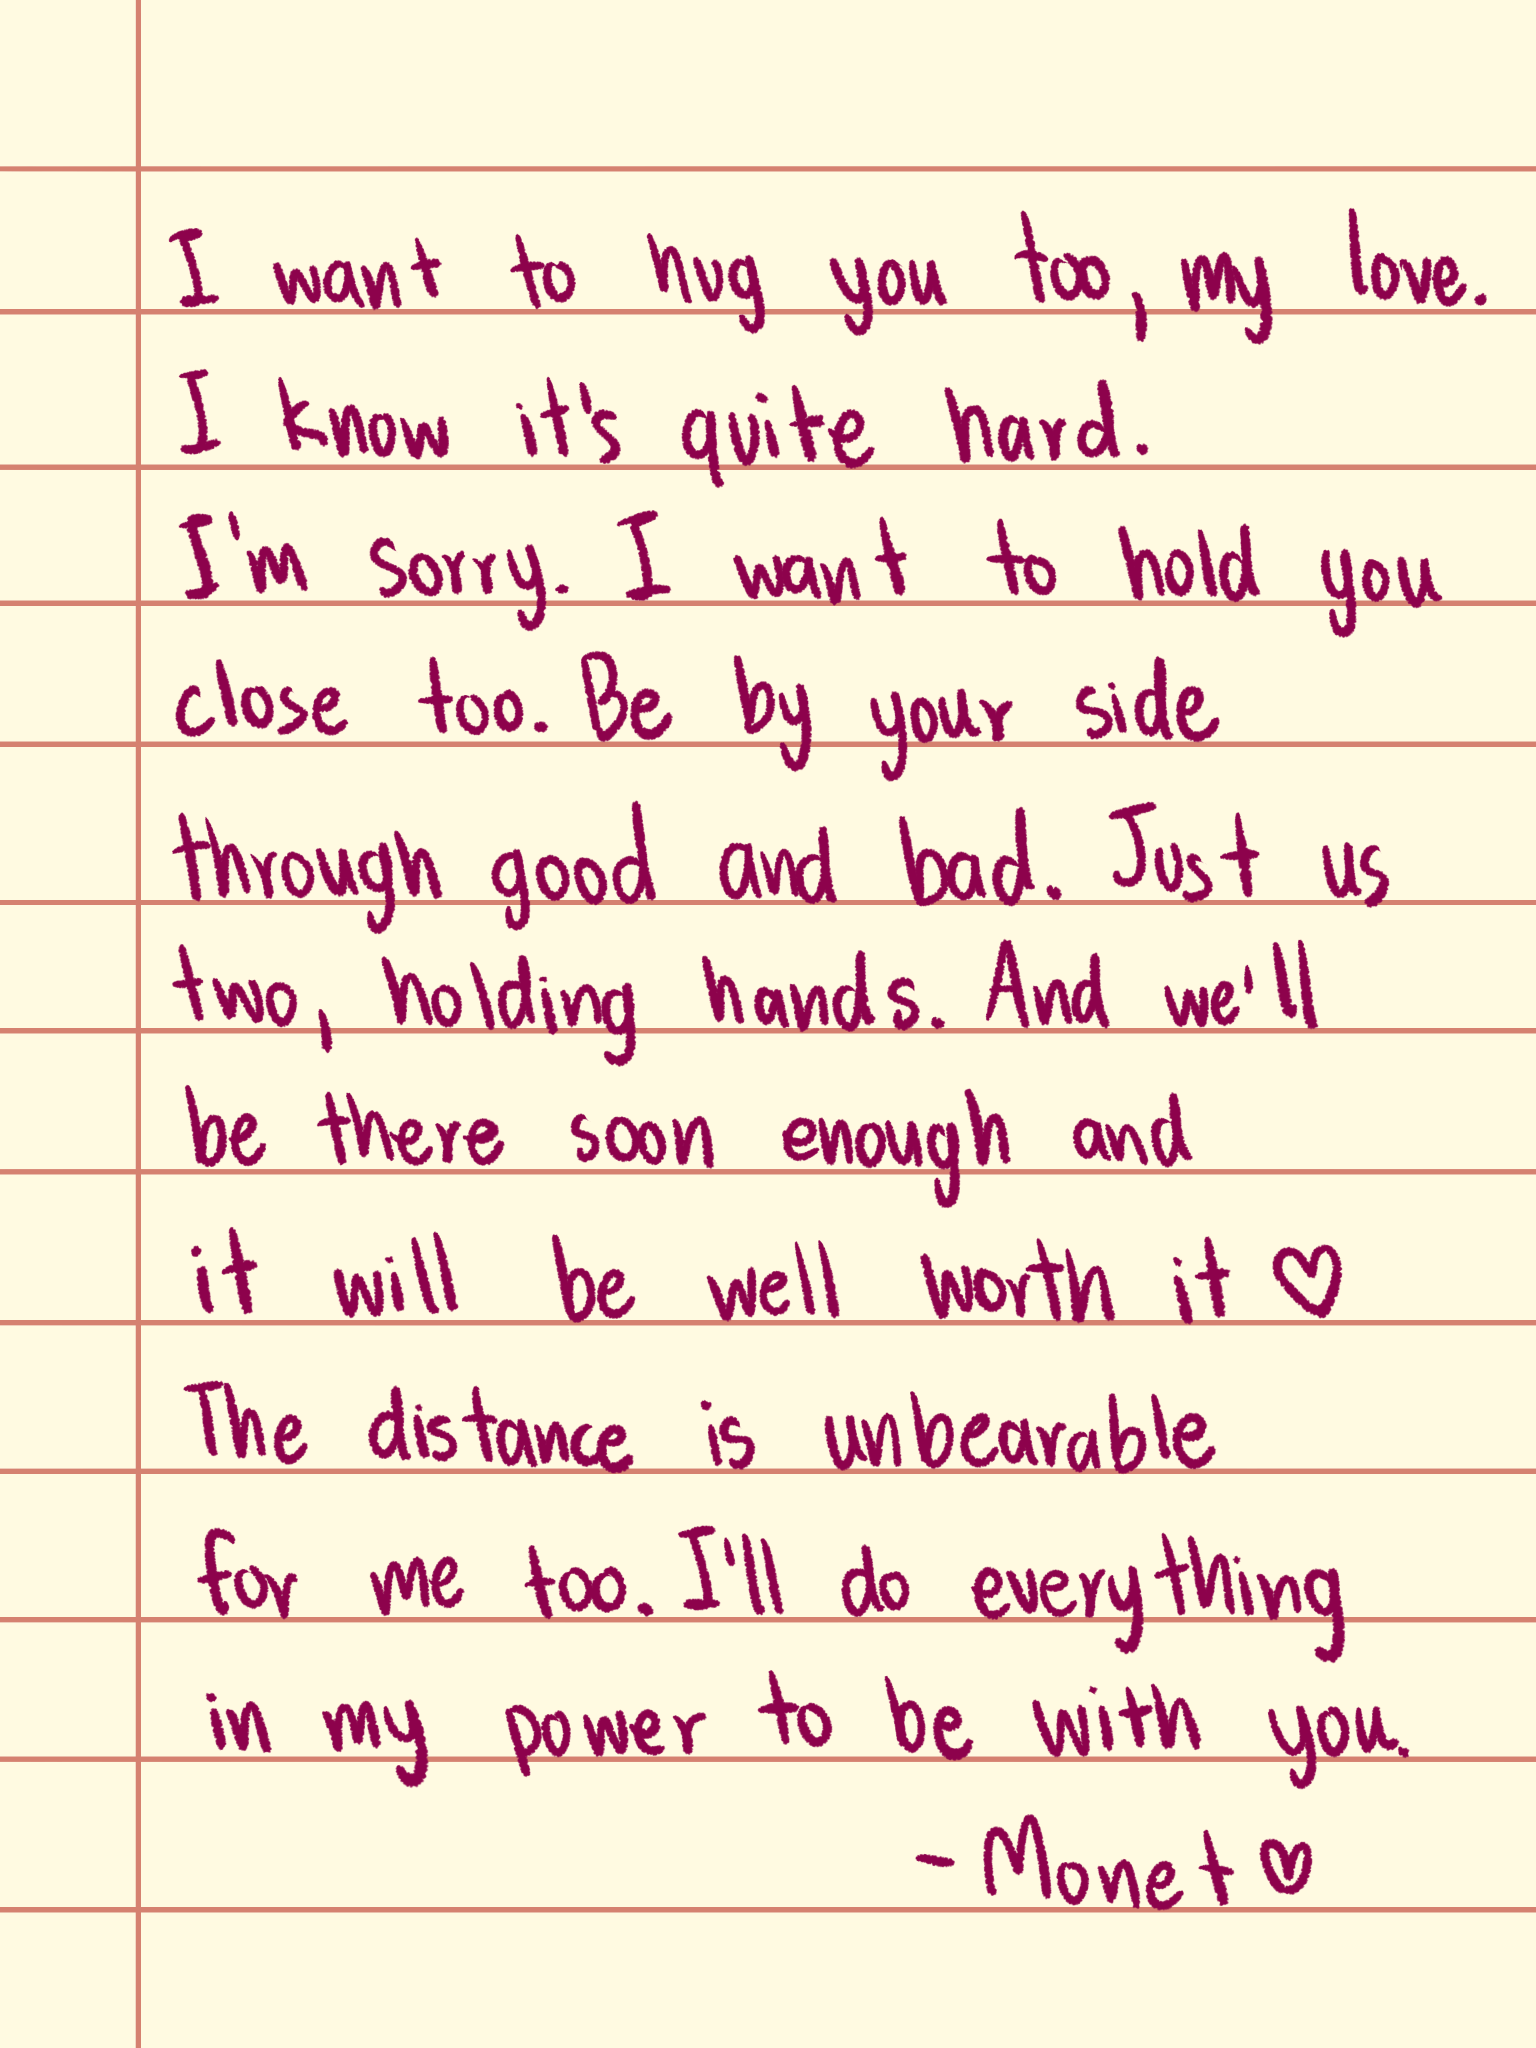 I want to hug you too, my love.
I know it's quite hard.
I'm sorry. I want to hold you
close too. Be by your side
through good and bad. Just us
two, holding hands. And we'll
be there soon enough and
it will be well worth it ♡
The distance is unbearable
for me too. I'll do everything
in my power to be with you.
- Monet ♡